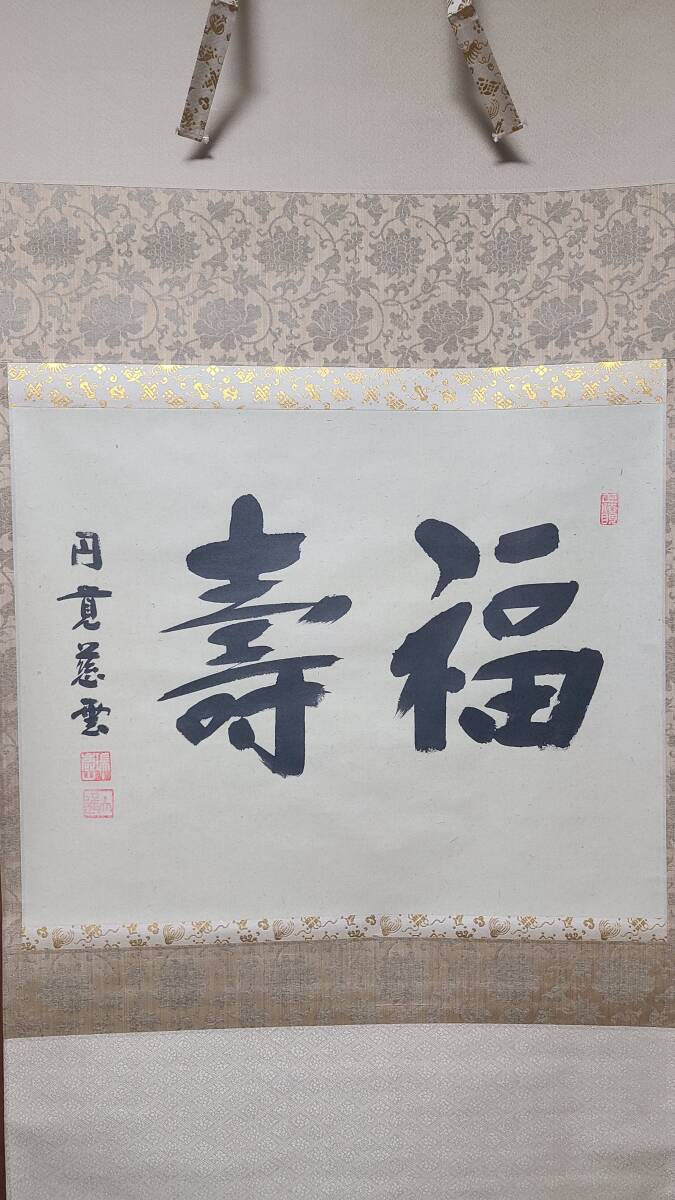 福壽
円覚慈雲